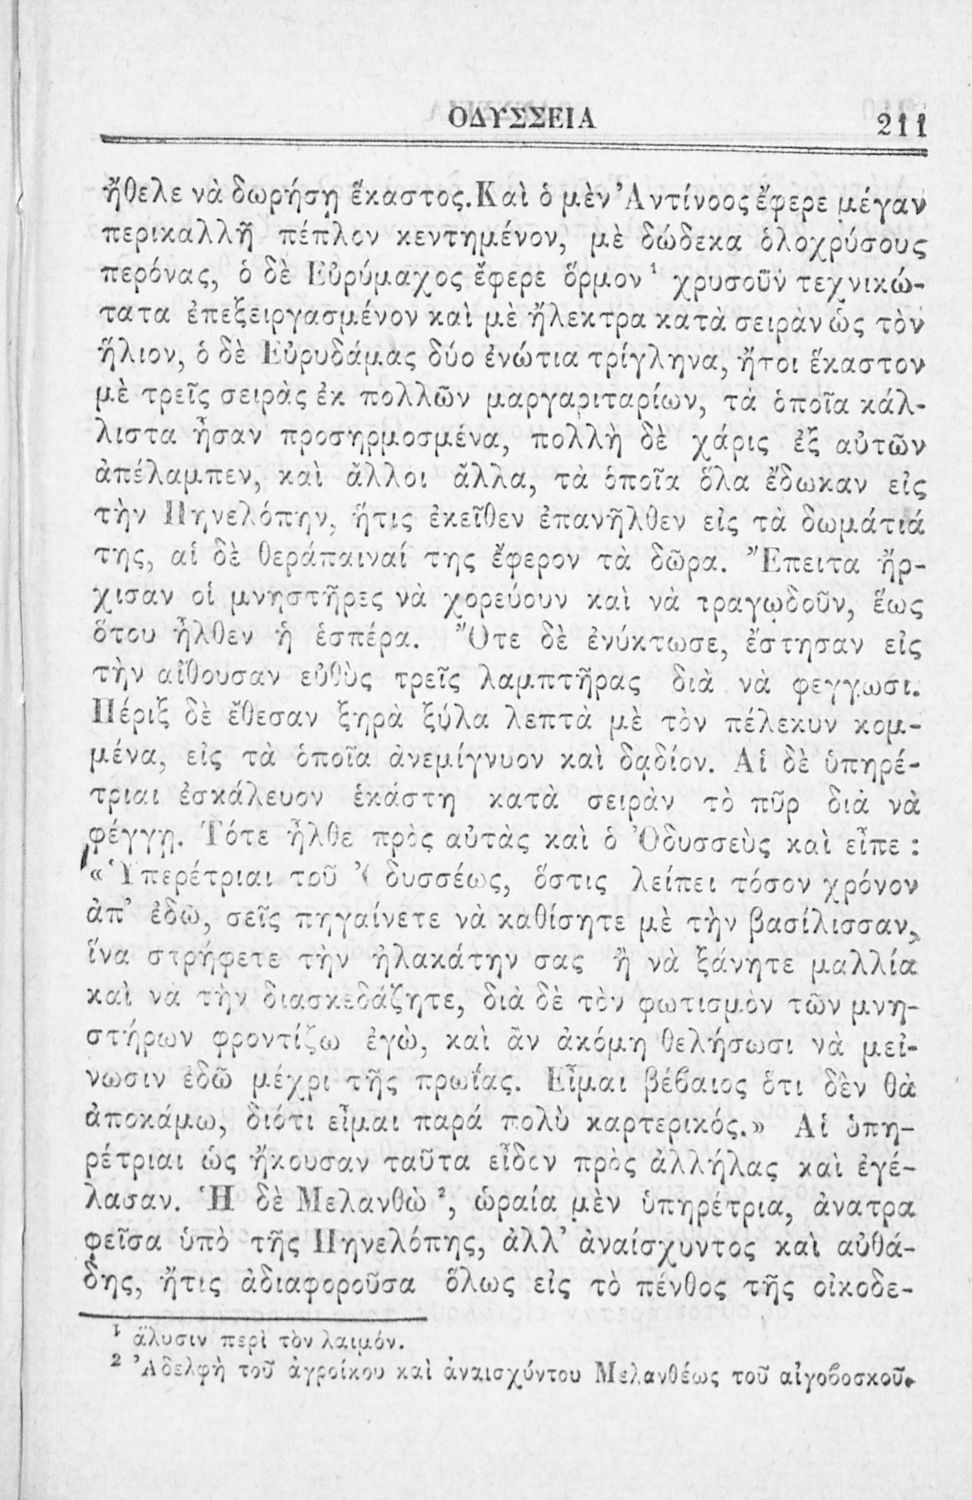 ΟΔΥΣΣΕΙΑ 211
ἤθελε νὰ δωρήσῃ ἕκαστος. Καὶ ὁ μὲν Ἀντίνοος ἔφερε μέγαν
περικαλλῆ πέπλον κεντημένον, μὲ δώδεκα ὁλοχρύσους
περόνας, ὁ δὲ Εὐρύμαχος ἔφερε ὅρμον ¹ χρυσοῦν τεχνικώ-
τατα ἐπεξειργασμένον καὶ μὲ ἤλεκτρα κατὰ σειρὰν ὡς τὸν
ἥλιον, ὁ δὲ Εὐρυδάμας δύο ἐνώτια τρίγληνα, ἤτοι ἕκαστον
μὲ τρεῖς σειρὰς ἐκ πολλῶν μαργαριταρίων, τὰ ὁποῖα κάλ-
λιστα ἦσαν προσηρμοσμένα, πολλὴ δὲ χάρις ἐξ αὐτῶν
ἀπέλαμπεν, καὶ ἄλλοι ἄλλα, τὰ ὁποῖα ὅλα ἔδωκαν εἰς
τὴν Πηνελόπην, ἥτις ἐκεῖθεν ἐπανῆλθεν εἰς τὰ δωμάτιά
της, αἱ δὲ θεράπαιναί της ἔφερον τὰ δῶρα. Ἔπειτα ἤρ-
χισαν οἱ μνηστῆρες νὰ χορεύουν καὶ νὰ τραγῳδοῦν, ἕως
ὅτου ἦλθεν ἡ ἑσπέρα. Ὅτε δὲ ἐνύκτωσε, ἔστησαν εἰς
τὴν αἴθουσαν εὐθὺς τρεῖς λαμπτῆρας διὰ νὰ φεγγωσι.
Πέριξ δὲ ἔθεσαν ξηρὰ ξύλα λεπτὰ μὲ τὸν πέλεκυν κομ-
μένα, εἰς τὰ ὁποῖα ἀνεμίγνυον καὶ δᾳδίον. Αἱ δὲ ὑπηρέ-
τριαι ἐσκάλευον ἑκάστη κατὰ σειρὰν τὸ πῦρ διὰ νὰ
φέγγῃ. Τότε ἦλθε πρὸς αὐτὰς καὶ ὁ Ὀδυσσεὺς καὶ εἶπε :
«Ὑπερέτριαι τοῦ Ὀδυσσέως, ὅστις λείπει τόσον χρόνον
ἀπ' ἐδῶ, σεῖς πηγαίνετε νὰ καθίσητε μὲ τὴν βασίλισσαν,
ἵνα στρήφετε τὴν ἠλακάτην σας ἢ νὰ ξάνητε μαλλία
καὶ νὰ τὴν διασκεδάζητε, διὰ δὲ τὸν φωτισμὸν τῶν μνη-
στήρων φροντίζω ἐγὼ, καὶ ἂν ἀκόμη θελήσωσι νὰ μεί-
νωσιν ἐδῶ μέχρι τῆς πρωίας. Εἶμαι βέβαιος ὅτι δὲν θὰ
ἀποκάμω, διότι εἶμαι παρά πολὺ καρτερικός.» Αἱ ὑπη-
ρέτριαι ὡς ἤκουσαν ταῦτα εἶδον πρὸς ἀλλήλας καὶ ἐγέ-
λασαν. Ἡ δὲ Μελανθὼ ², ὡραία μὲν ὑπηρέτρια, ἀνατρα
φεῖσα ὑπὸ τῆς Πηνελόπης, ἀλλ' ἀναίσχυντος καὶ αὐθά-
δης, ἥτις ἀδιαφοροῦσα ὅλως εἰς τὸ πένθος τῆς οἰκοδε-
¹ ἅλυσιν περὶ τὸν λαιμόν.
² Ἀδελφὴ τοῦ ἀγροίκου καὶ ἀναισχύντου Μελανθέως τοῦ αἰγοβοσκοῦ.